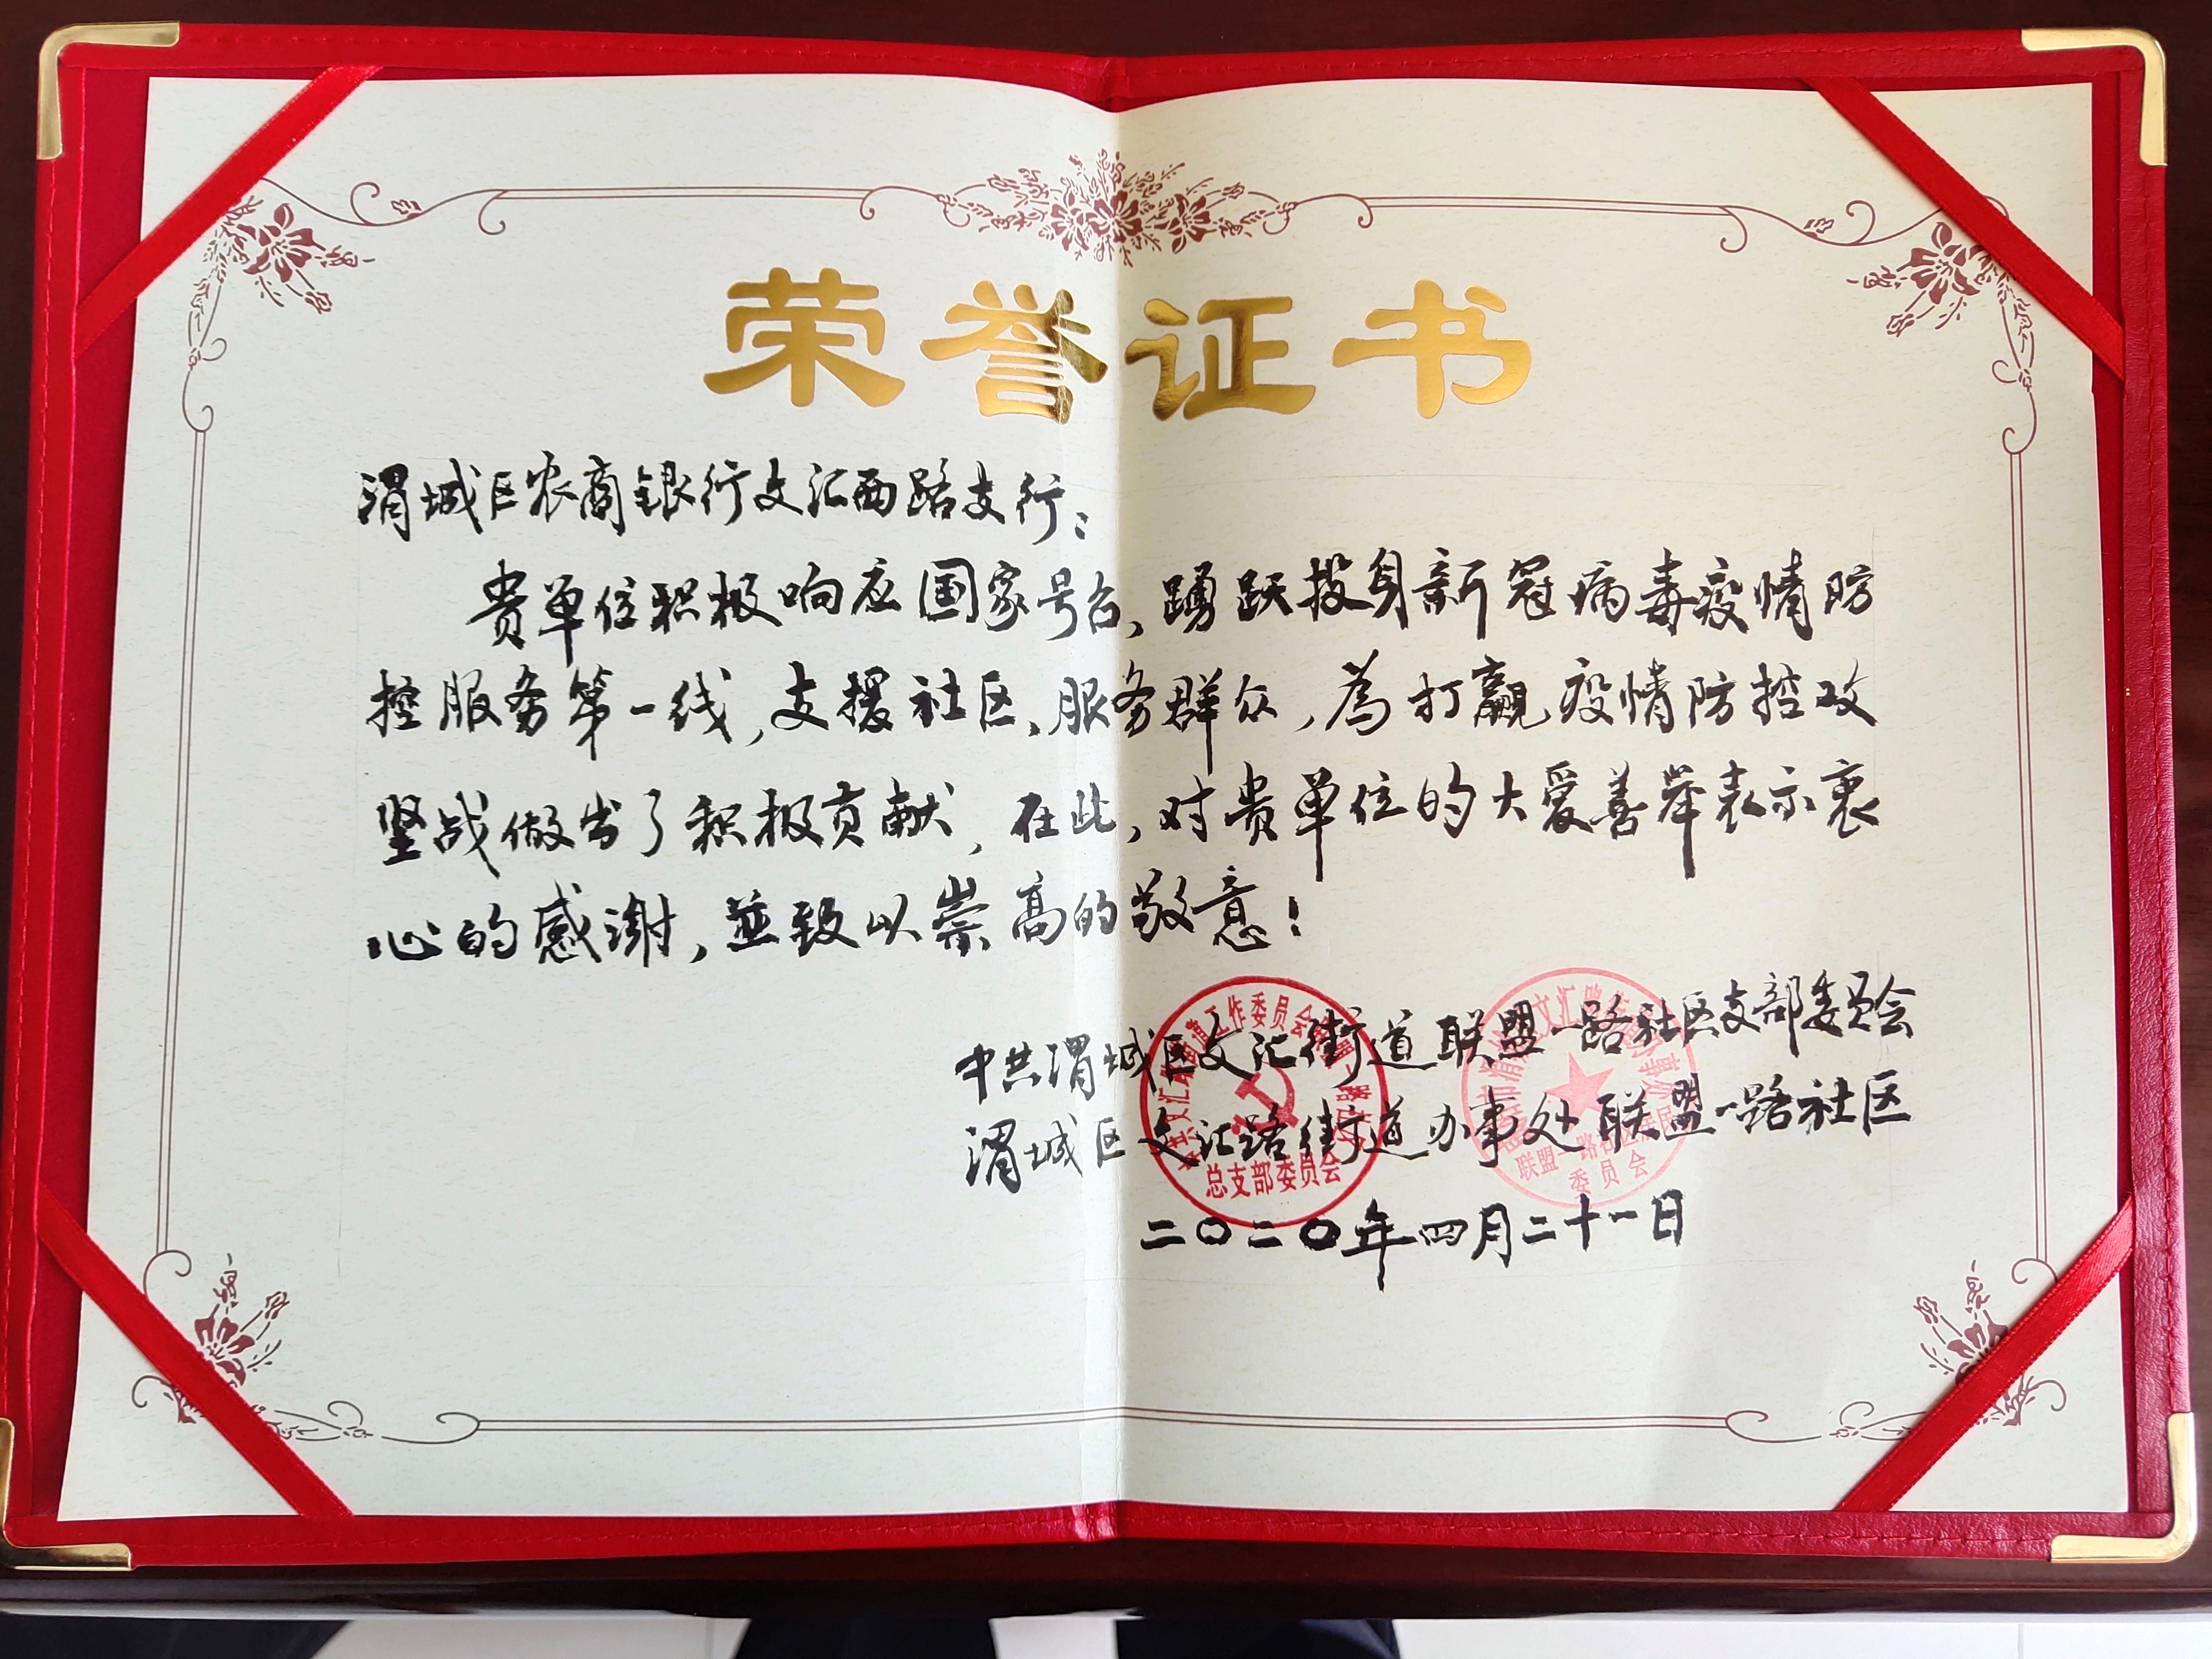 荣誉证书
渭城区农商银行文汇西路支行：
贵单位积极响应国家号召，踊跃投身新冠病毒疫情防
控服务第一线，支援社区、服务群众，為打贏疫情防控攻
坚战做出了积极贡献，在此，对贵单位的大爱善举表示衷
心的感谢，並致以崇高的敬意！
中共渭城区文汇街道联盟一路社区支部委员会
渭城区文汇路街道办事处联盟一路社区
二〇二〇年四月二十一日
总支部委员会
委员会